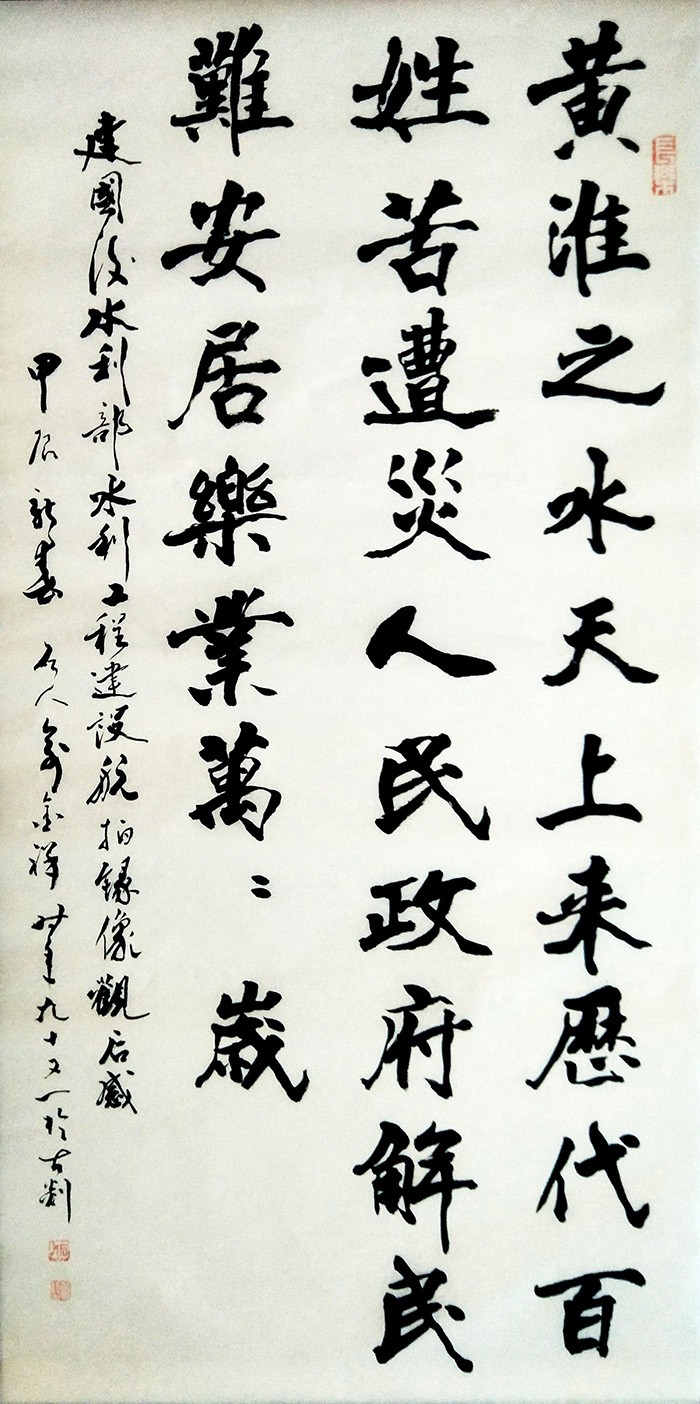 黃淮之水天上来歷代百
姓苦遭災人民政府解民
難安居樂業萬〻歲
建國後水利部水利工程建設航拍錄像觀后感
甲辰新春 石人 金祥時年九十又一於古剡